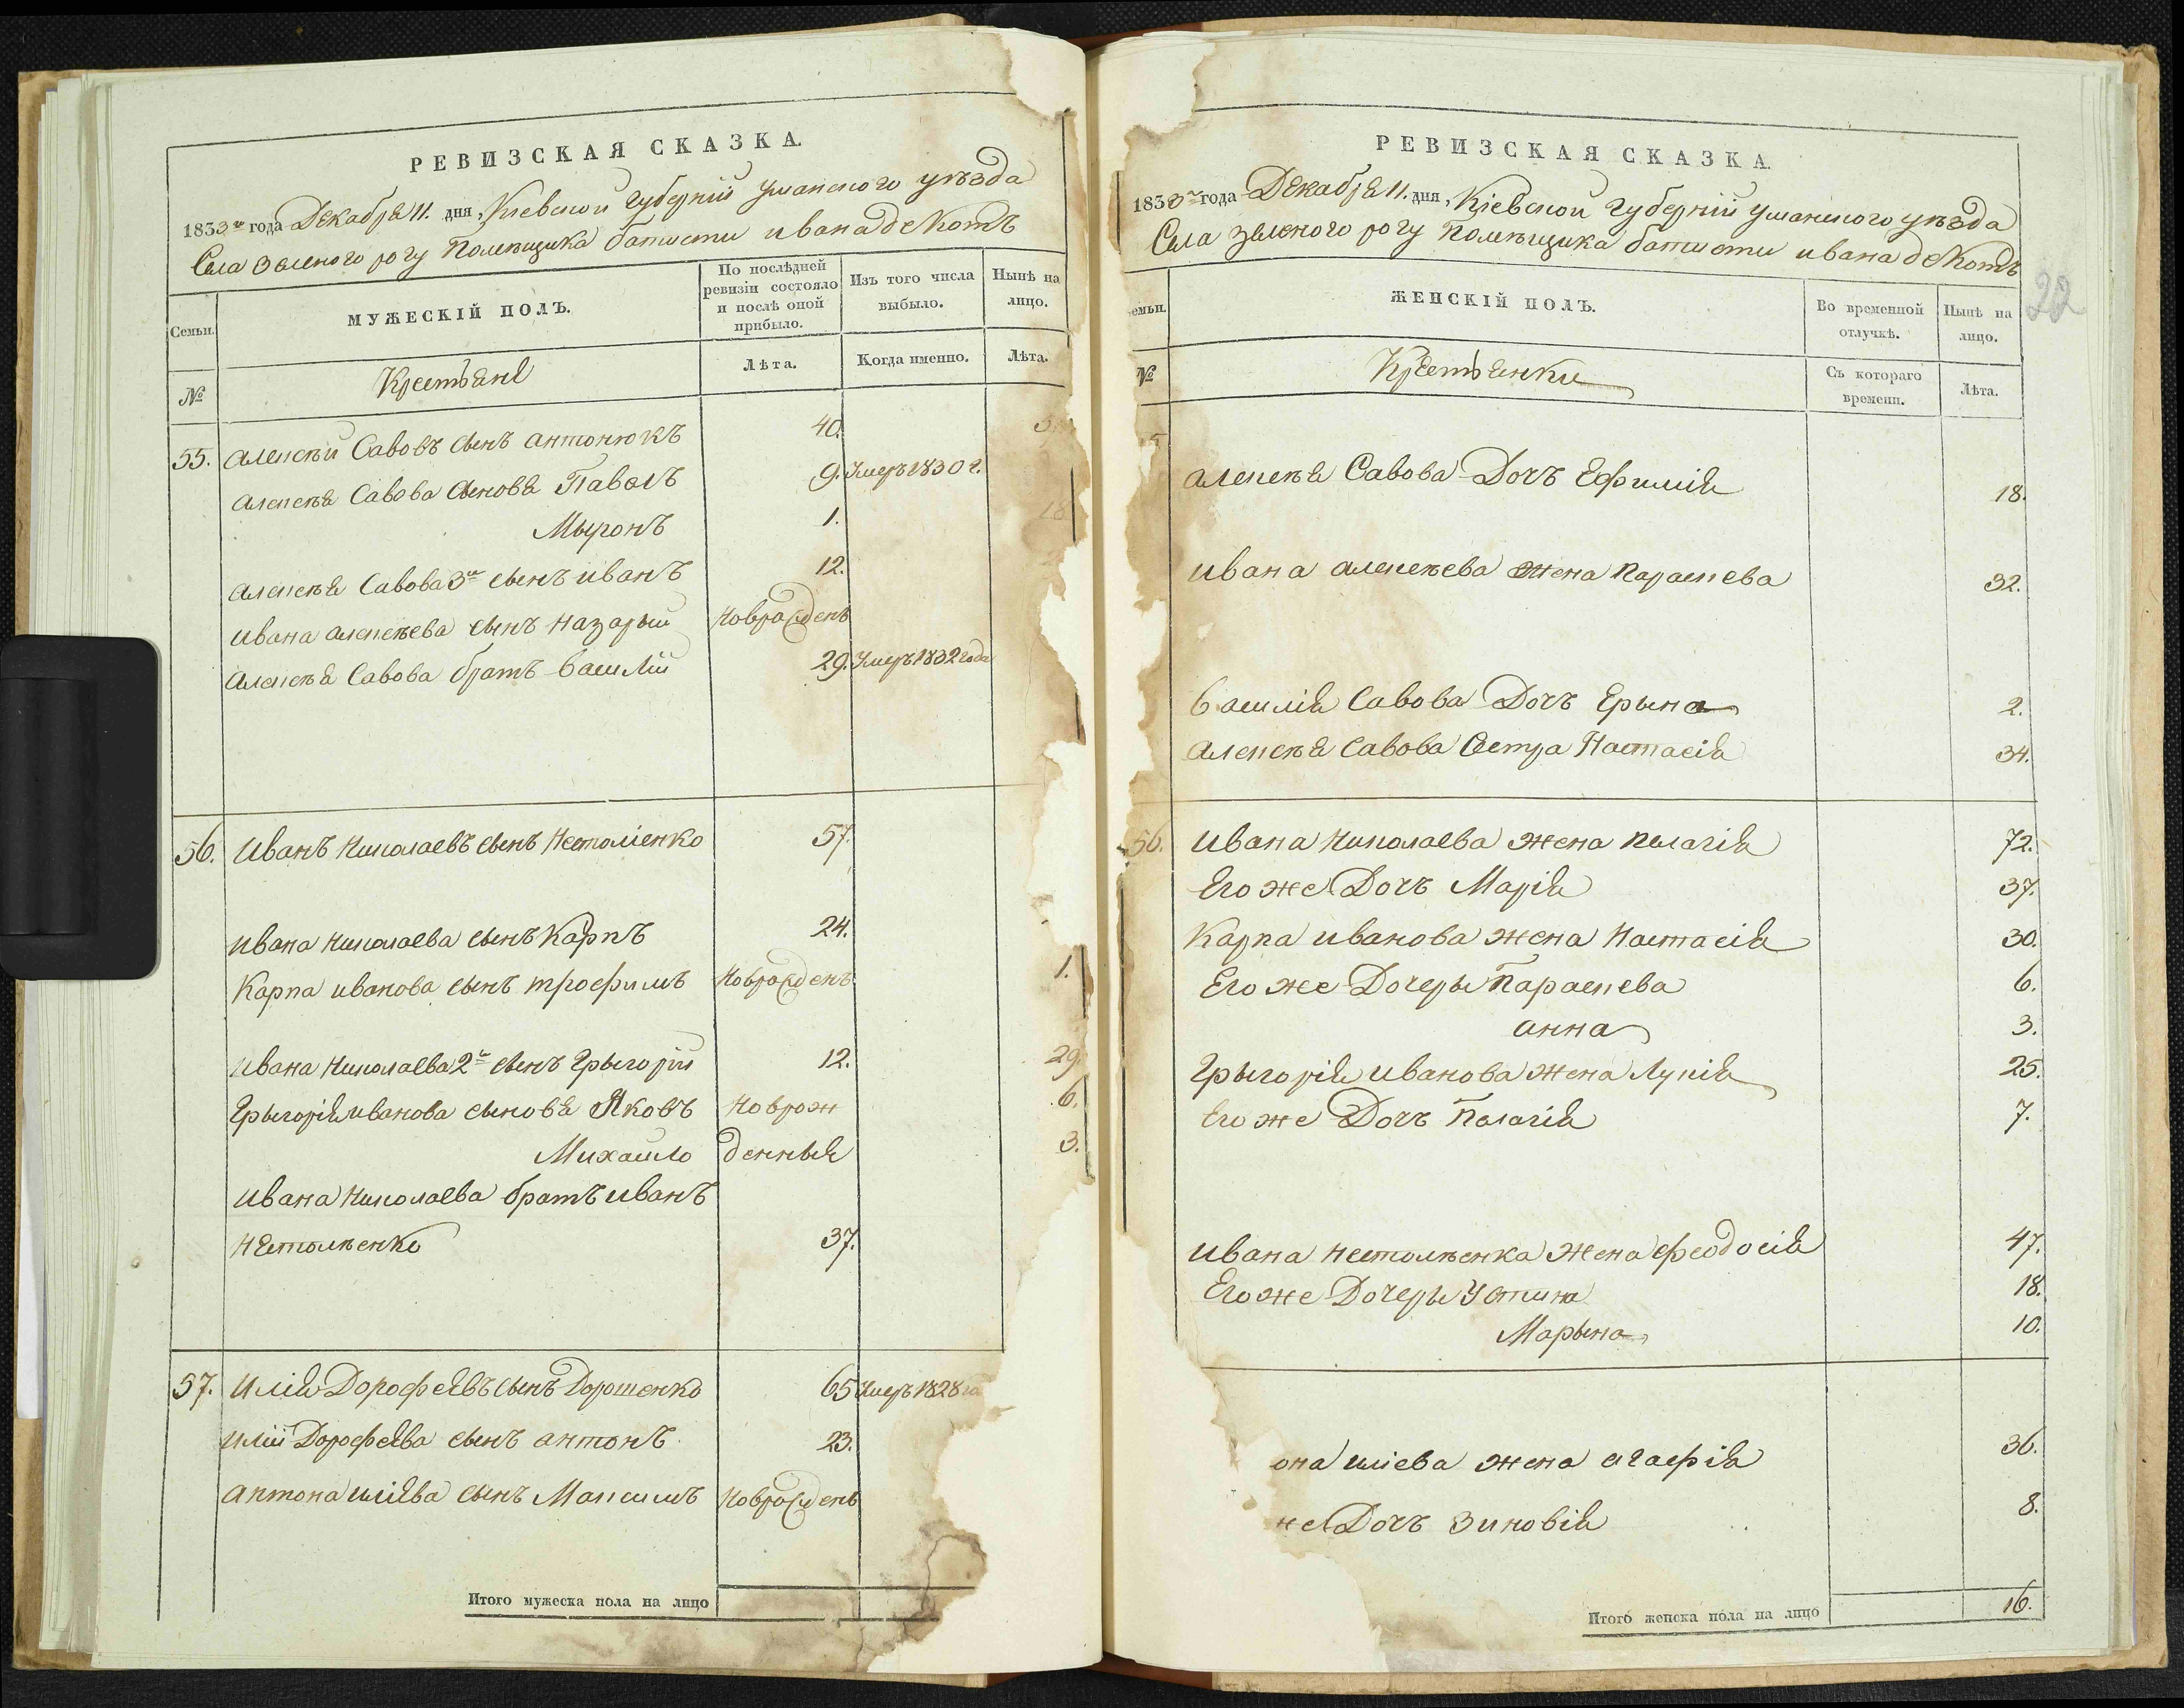 РЕВИЗСКАЯ СКАЗКА.
1833го года Декабря 11. дня, Кіевской Губерніи Уманского уѣзда
Села Зеленого рогу Помѣщика батисти ивана деКотъ
Семьи.
МУЖЕСКІЙ ПОЛЪ.
По послѣдней ревизіи состояло и послѣ оной прибыло.
Изъ того числа выбыло.
Нынѣ на лицо.
№
Крестьяне
Лѣта.
Когда именно.
Лѣта.
55. Алексѣй Савовъ сынъ Антонюкъ 40.
Алексѣя Савова сыновя Павелъ 9. Умеръ 1830 г.
Мыронъ 1. 18
Алексѣя Савова 3й сынъ иванъ 12.
Ивана алексѣева сынъ назарый новрожденъ
Алексѣя Савова братъ василій 29. Умеръ 1832 года
56. Иванъ Николаевъ сынъ Нестоліенко 57.
Ивана Николаева сынъ Карпъ 24.
Карпа иванова сынъ трофимъ новрожденъ 1.
Ивана Николаева 2й сынъ Грыгорій 12. 29.
Грыгорія иванова сыновя Яковъ новрож 6.
Михайло денныя 3.
Ивана Николаева братъ иванъ
нестолѣенко 37.
57. Илія Дорофеевъ сынъ Дорошенко 65 Умеръ 1828 го
Иліи Дорофеева сынъ антонъ 23.
Антона иліева сынъ Максимъ новрожденъ
Итого мужеска пола на лицо
РЕВИЗСКАЯ СКАЗКА.
1833го года Декабря 11. дня, Кіевской Губерніи Уманского уѣзда
Села Зеленого рогу Помѣщика батисти ивана деКотъ
22
емьи.
ЖЕНСКІЙ ПОЛЪ.
Во временной отлучкѣ.
Нынѣ на лицо.
№
Крестьянки
Съ котораго времени.
Лѣта.
5
Алексѣя Савова Дочъ Ефимія 18.
Ивана алексѣева жена Параскева 32.
Василія Савова Дочъ Ерына 2.
Алексѣя Савова Сестра Настасія 34.
56. Ивана Николаева жена Пелагія 72.
Его же Дочъ Марія 37.
Карпа иванова жена Настасія 30.
Его же Дочеры Параскева 6.
анна 3.
Грыгорія иванова жена Лукія 25.
Его же Дочъ Пелагія 7.
Ивана нестолѣенка жена феодосія 47.
Его же Дочеры Устина 18.
Марына 10.
она иліева жена агафія 36.
же Дочъ Зиновія 8.
Итого женска пола на лицо 16.